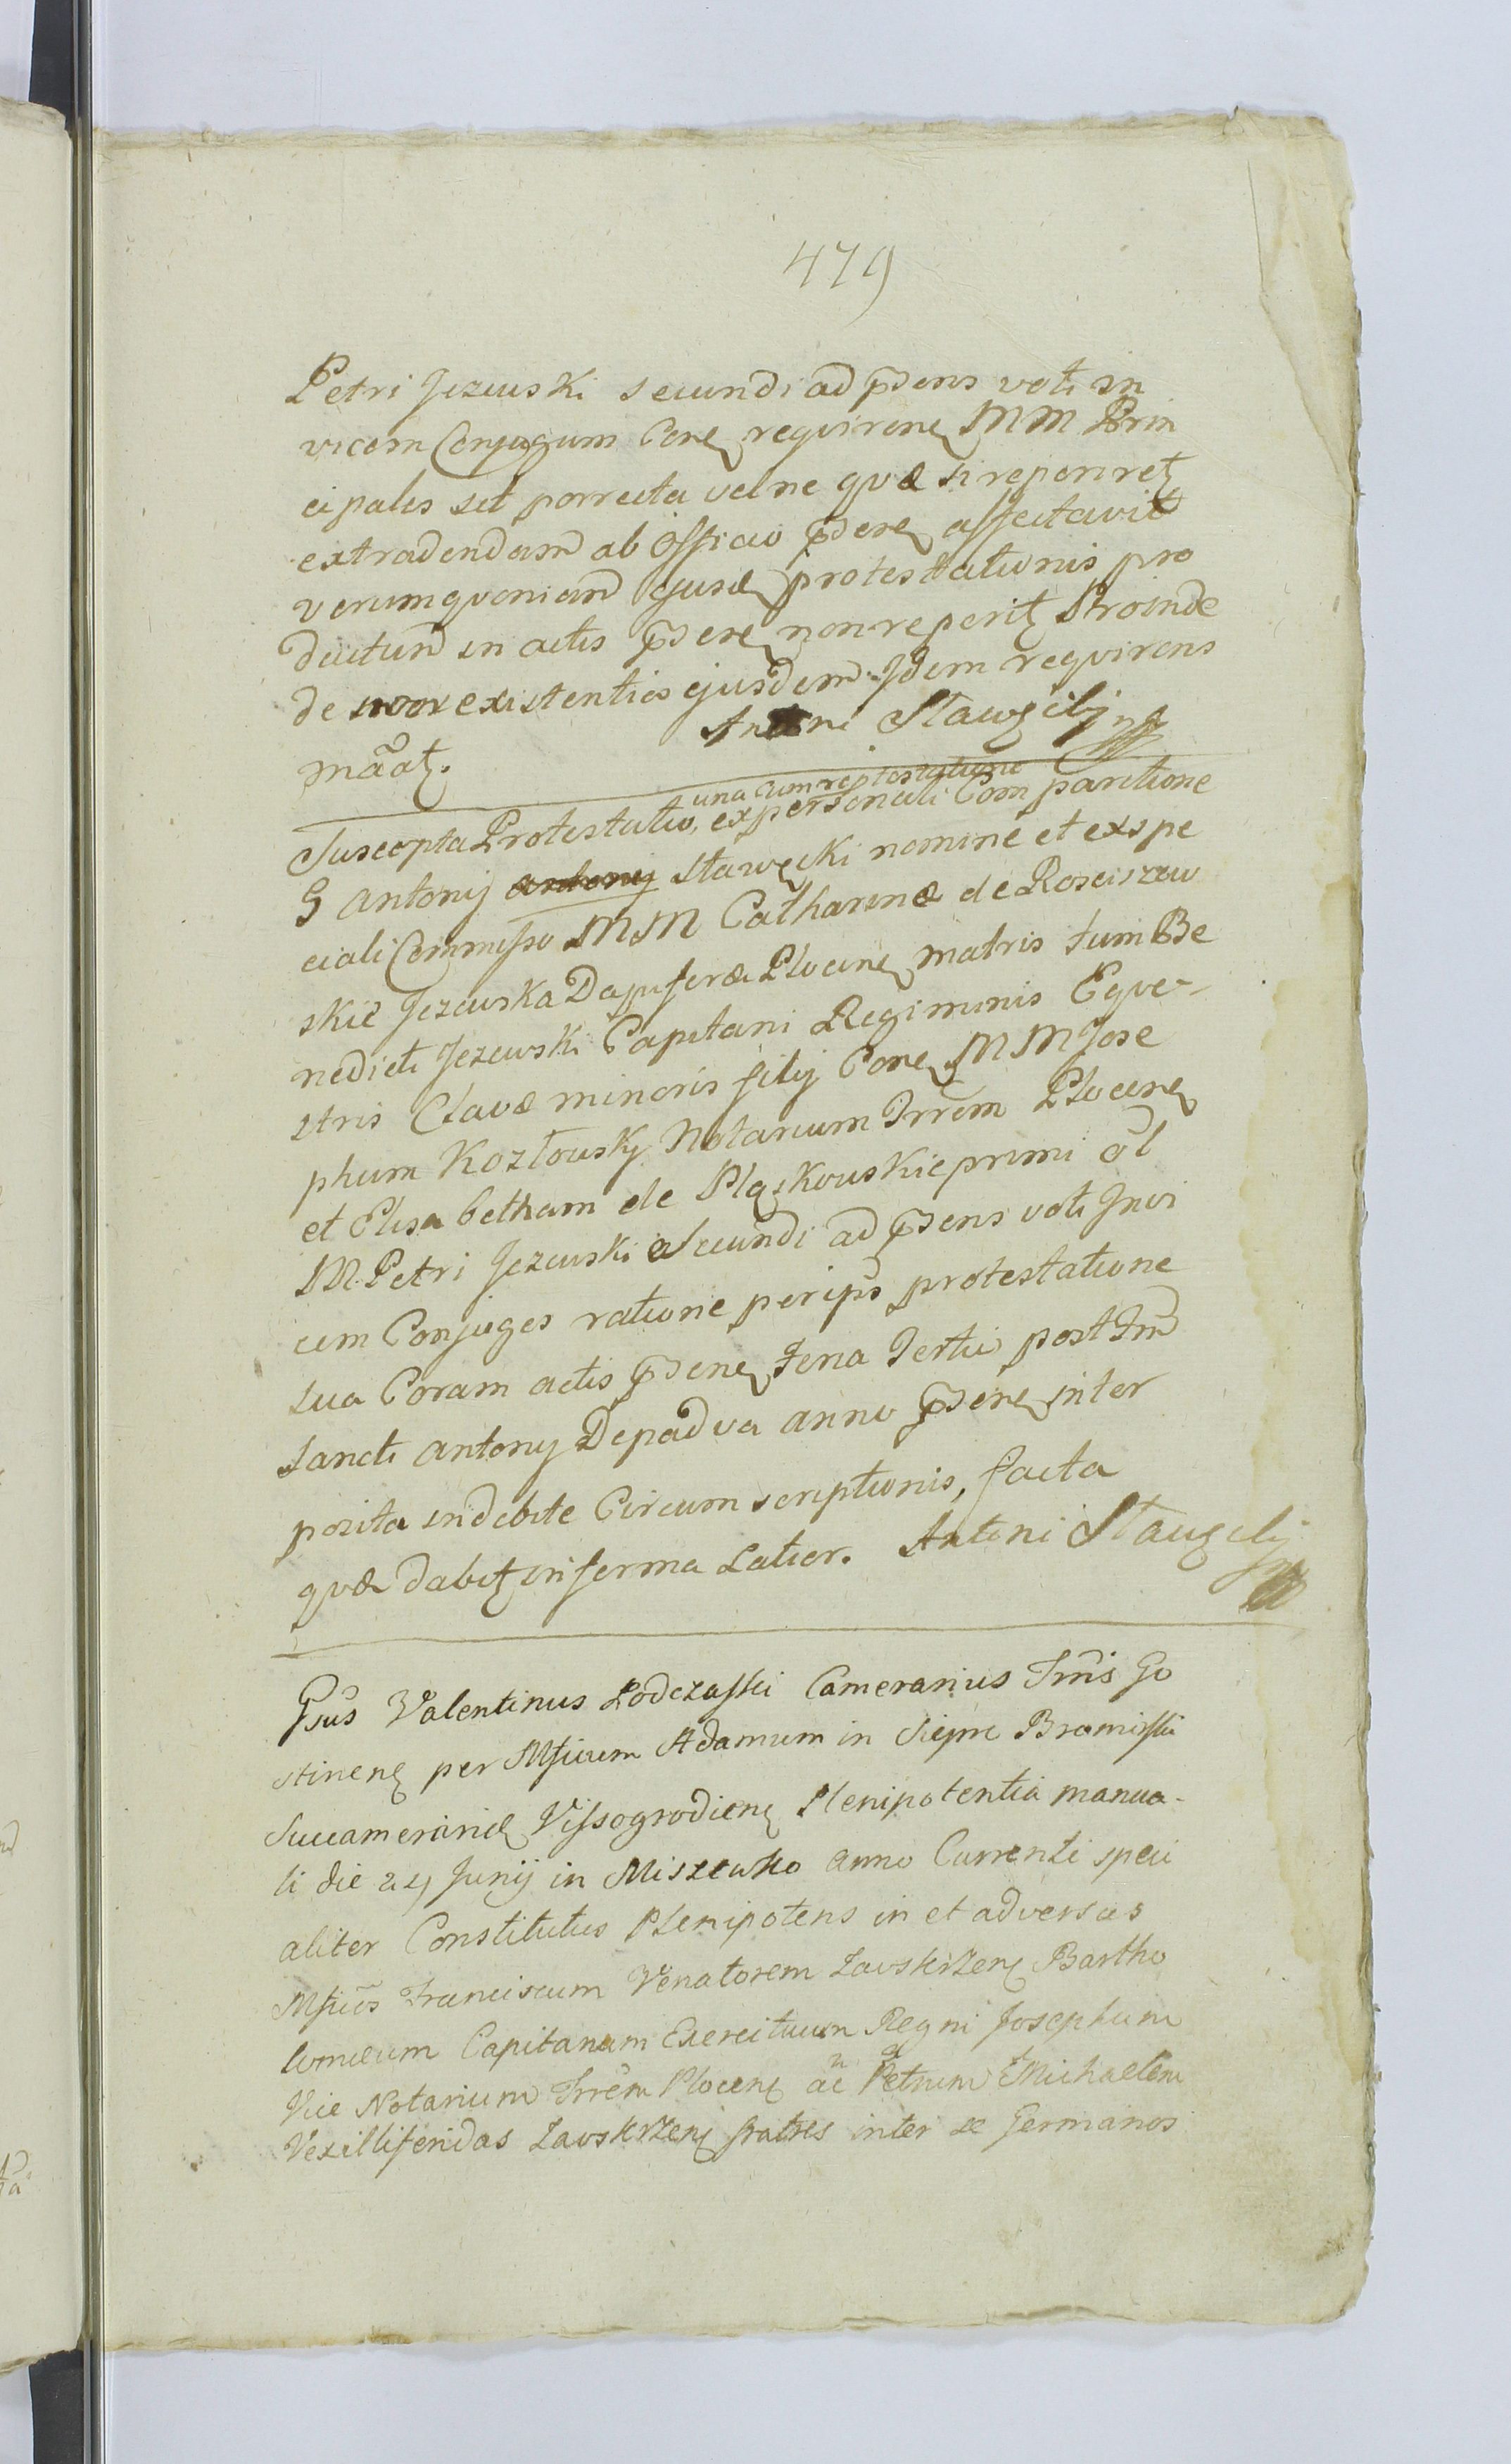 479
Petri Jezewski secundi ad p̄sens voti in
vicem Conjugum Conȩ requirenȩ MM Prin
cipales sit porrecta velne quæ si reperiretȩ
extradendam ab officio p̄senȩ affectavit
verum quoniam ejusdȩ protestationis pro
ductum in actis p̄senȩ non reperitȩ Proinde
de existentia ejusdem Idem requirens
mãatȩ. Antoni Stawęcki mp
una cum reptestatione
Suscepta Protestatio, ex personali Comparitione
G Antonij Antonij Stawęcki nomine et ex spe
ciali Commisso MM Catharinæ de Rosciszew
skie Jezewska Dapiferæ Plocenȩ matris tum Be
nedicti Jezewski Capitani Regiminis Eque-
stris Clavæ minoris filij Conȩ MM Jose
phum Kozłowsky Notarium Trrem Plocenȩ
et Elisabetham de Pląskowskie primi ol
M. Petri Jezewski a Secundi ad p̄sens voti Invi
cem Conjuges ratione per ip̃s protestatione
sua Coram actis p̄senȩ Feria Tertia post Fm̃
Sancti Antony De padva anno p̄senȩ inter
posita indebite Circumscriptionis, facta
quæ dabitȩ in forma Latior. Antoni Stawęcki
mp
Gsus Valentinus Lodczasski Camerarius Trris Go
stinenȩ per Mficum Adamum in Siepre Bromirski
Succameraridȩ Vissogrodienȩ Plenipotentia manua-
li die 24 Junij in Miszewko anno Currenti speci
aliter Constitutus Plenipotens in et adversus
Mficos Franciscum Venatorem Zawskrzenȩ Bartho
lomeum Capitaneum Exercituum Regni Josephum
Vice Notarium Trrem Plocenȩ ac Petrum Michaelem
Vexilliferidas Zawskrzenȩ fratres inter se Germanos